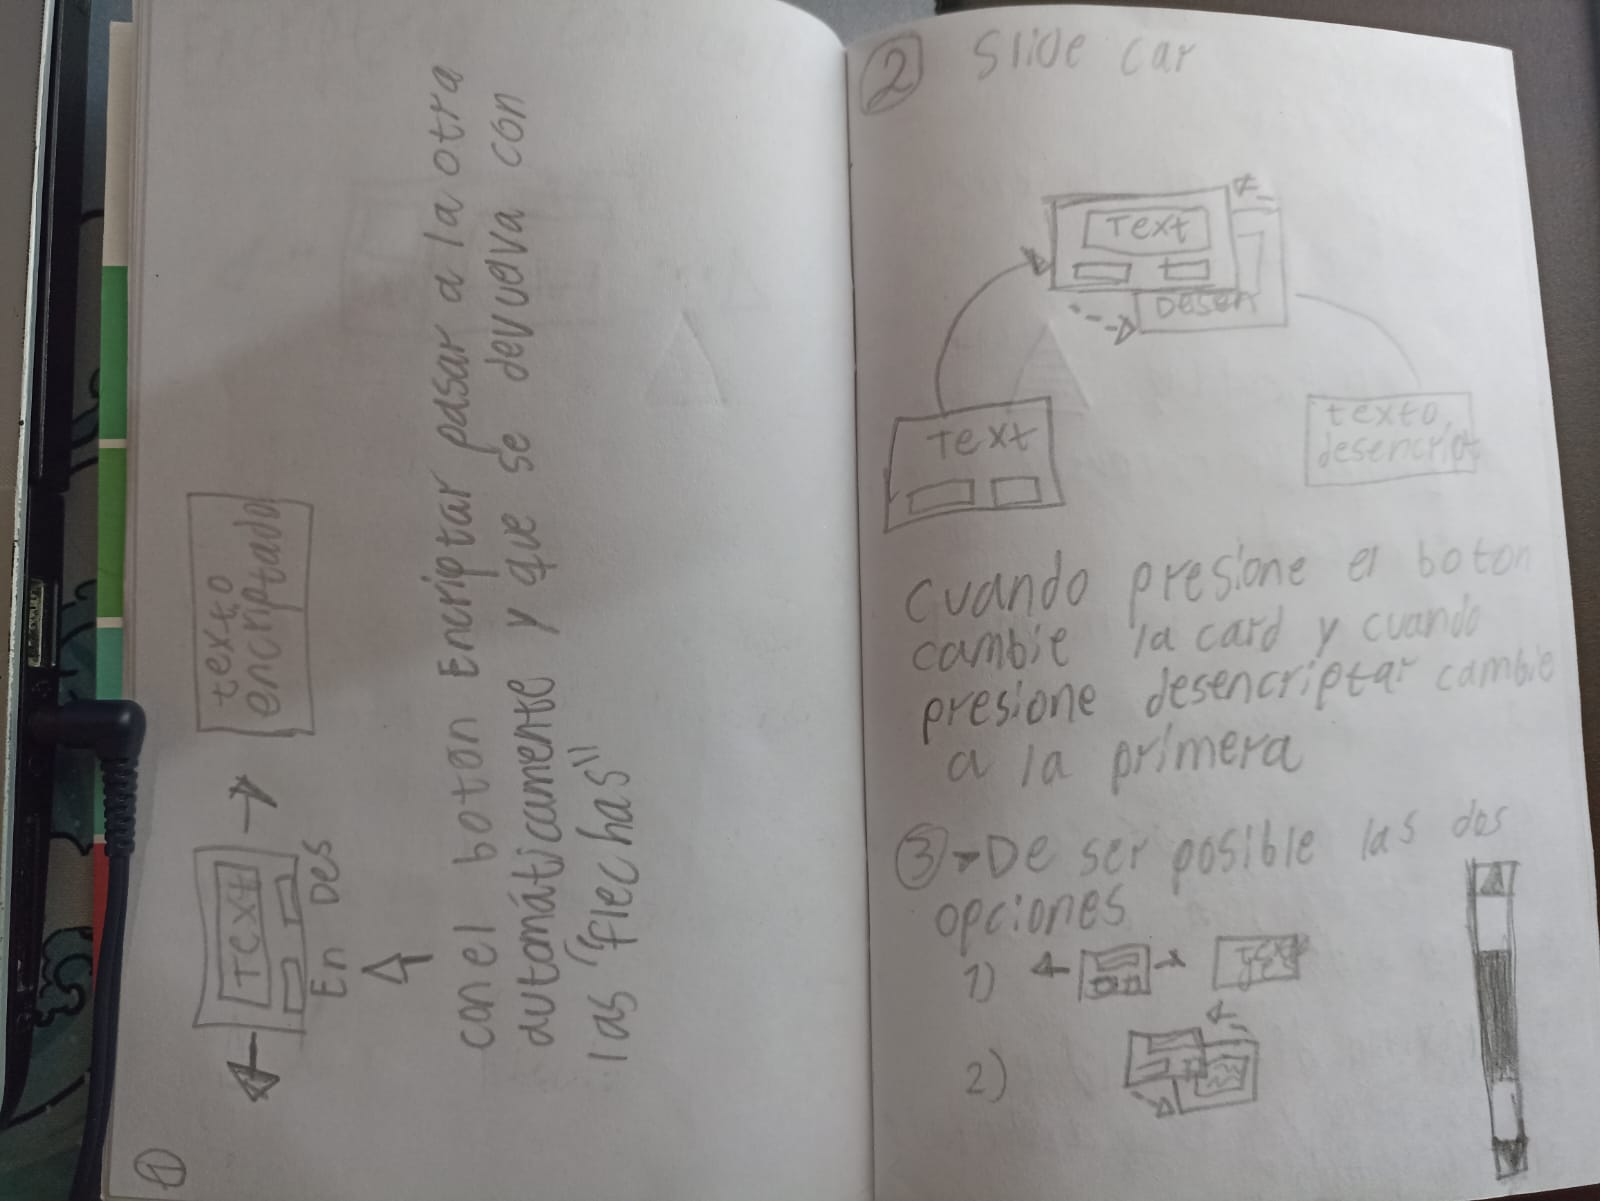 1
Text
En Des
texto
encriptado
con el boton Encriptar pasar a la otra
automáticamente y que se devuelva con
las "flechas"
2 Slide car
Text
Desen
Text
texto
desencript
cuando presione el boton
cambie la card y cuando
presione desencriptar cambie
a la primera
3 - De ser posible las dos
opciones
1)
2)